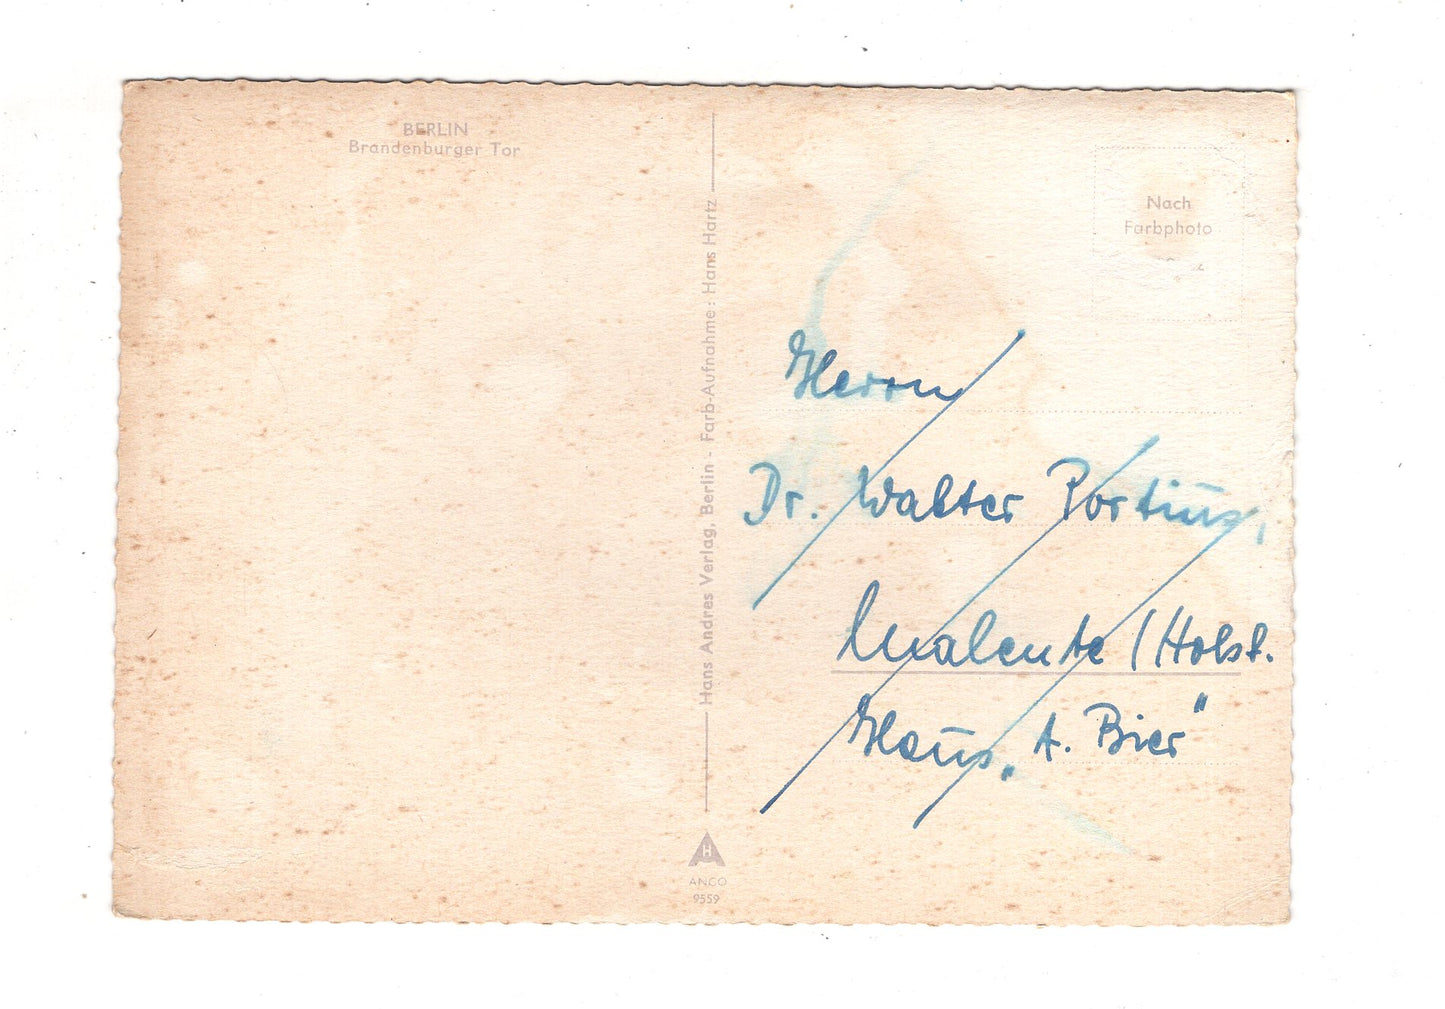 BERLIN
Brandenburger Tor
Hans Andres Verlag, Berlin - Farb-Aufnahme: Hans Hartz
Nach
Farbphoto
Herrn
Dr. Walter Portius,
Malente / Holst.
Haus „A. Bier"
H
ANCO
9559